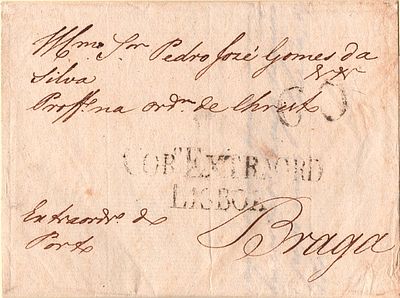 Illmo Snr Pedro José Gomes da
Silva
Proffo na ordm de Christ
60
COR EXTRAORD
LISBOA
Extraordro do
Porto
Braga